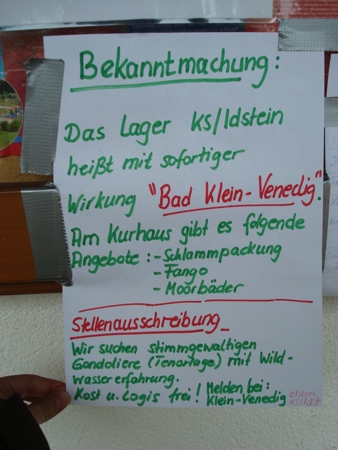 Bekanntmachung:
Das Lager KS/Idstein
heißt mit sofortiger
Wirkung "Bad Klein-Venedig".
Am Kurhaus gibt es folgende
Angebote: - Schlammpackung
- Fango
- Moorbäder
Stellenausschreibung
Wir suchen stimmgewaltigen
Gondoliere (Tenorlage) mit Wild-
wassererfahrung.
Kost u. Logis frei! Melden bei:
Klein-Venedig